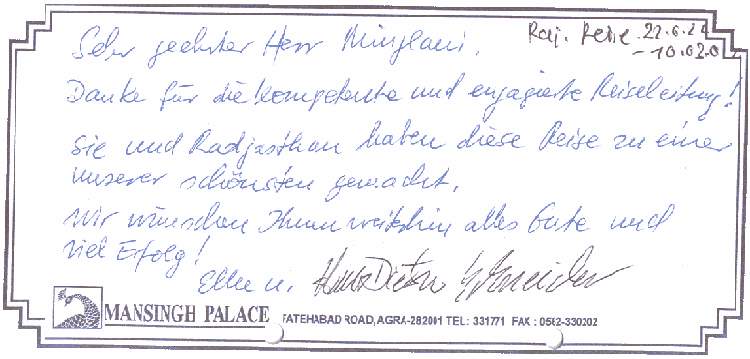 Raj. Reise 22.
- 10.02.0
Sehr geehrter Herr Minglani,
Danke für die kompetente und engagierte Reiseleitung!
Sie und Radjasthan haben diese Reise zu einer
unserer schönsten gemacht.
Wir wünschen Ihnen weiterhin alles Gute und
viel Erfolg!
Elke u. Hans Dieter Schneider
MANSINGH PALACE
FATEHABAD ROAD, AGRA-282001 TEL: 331771 FAX : 0562-330202